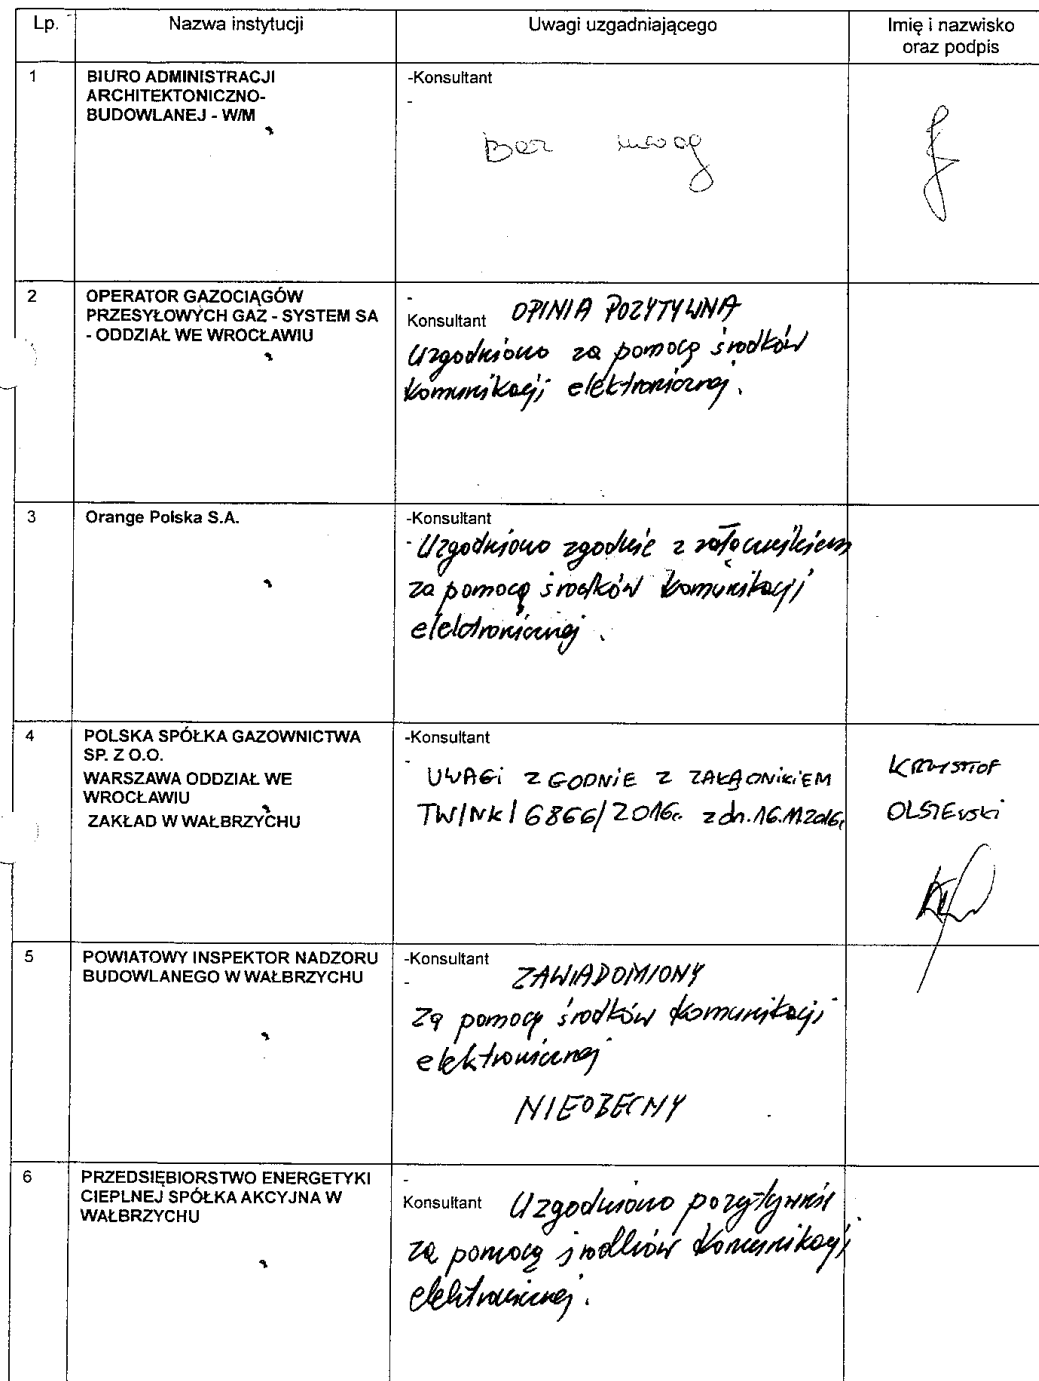 Lp.
Nazwa instytucji
Uwagi uzgadniającego
Imię i nazwisko
oraz podpis
1
BIURO ADMINISTRACJI
ARCHITEKTONICZNO-
BUDOWLANEJ - W/M
-Konsultant
-
Bez uwag
2
OPERATOR GAZOCIĄGÓW
PRZESYŁOWYCH GAZ - SYSTEM SA
- ODDZIAŁ WE WROCŁAWIU
-
Konsultant OPINIA POZYTYWNA
Uzgodniono za pomocą środków
komunikacji elektronicznej.
3
Orange Polska S.A.
-Konsultant
- Uzgodniono zgodnie z załącznikiem
za pomocą środków komunikacji
elektronicznej.
4
POLSKA SPÓŁKA GAZOWNICTWA
SP. Z O.O.
WARSZAWA ODDZIAŁ WE
WROCŁAWIU
ZAKŁAD W WAŁBRZYCHU
-Konsultant
-
UWAGI ZGODNIE Z ZAŁĄCNIKIEM
TW/NK/6866/2016r. z dn. 16.11.2016r.
KRZYSZTOF
OLSZEWSKI
5
POWIATOWY INSPEKTOR NADZORU
BUDOWLANEGO W WAŁBRZYCHU
-Konsultant
-
ZAWIADOMIONY
Za pomocą środków komunikacji
elektronicznej
NIEOBECNY
6
PRZEDSIĘBIORSTWO ENERGETYKI
CIEPLNEJ SPÓŁKA AKCYJNA W
WAŁBRZYCHU
-
Konsultant Uzgodniono pozytywnie
za pomocą środków komunikacji
elektronicznej.